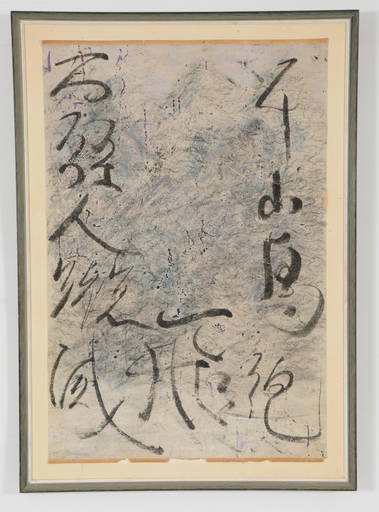 千山鳥飛絕
万徑人蹤滅